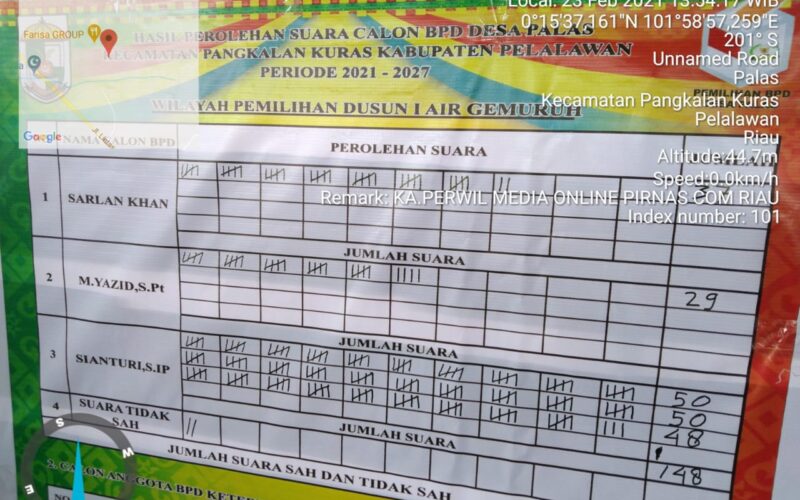 Local: 23 Feb 2021 13:54:17 WIB
0°15'37,161"N 101°58'57,259"E
201° S
Unnamed Road
Palas
Kecamatan Pangkalan Kuras
Pelalawan
Riau
Altitude:44.7m
Speed:0.0km/h
Remark: KA.PERWIL MEDIA ONLINE PIRNAS COM RIAU
Index number: 101
Farisa GROUP
Google
HASIL PEROLEHAN SUARA CALON BPD DESA PALAS
KECAMATAN PANGKALAN KURAS KABUPATEN PELALAWAN
PERIODE 2021 - 2027
PEMILIHAN BPD
WILAYAH PEMILIHAN DUSUN I AIR GEMURUH
NAMA CALON BPD PEROLEHAN SUARA
1 SARLAN KHAN
JUMLAH SUARA
2 M.YAZID,S.Pt 29
JUMLAH SUARA
3 SIANTURI,S.IP 50
50
48
4 SUARA TIDAK SAH
JUMLAH SUARA
148
JUMLAH SUARA SAH DAN TIDAK SAH
2. CALON ANGGOTA BPD
NO
S
W
E